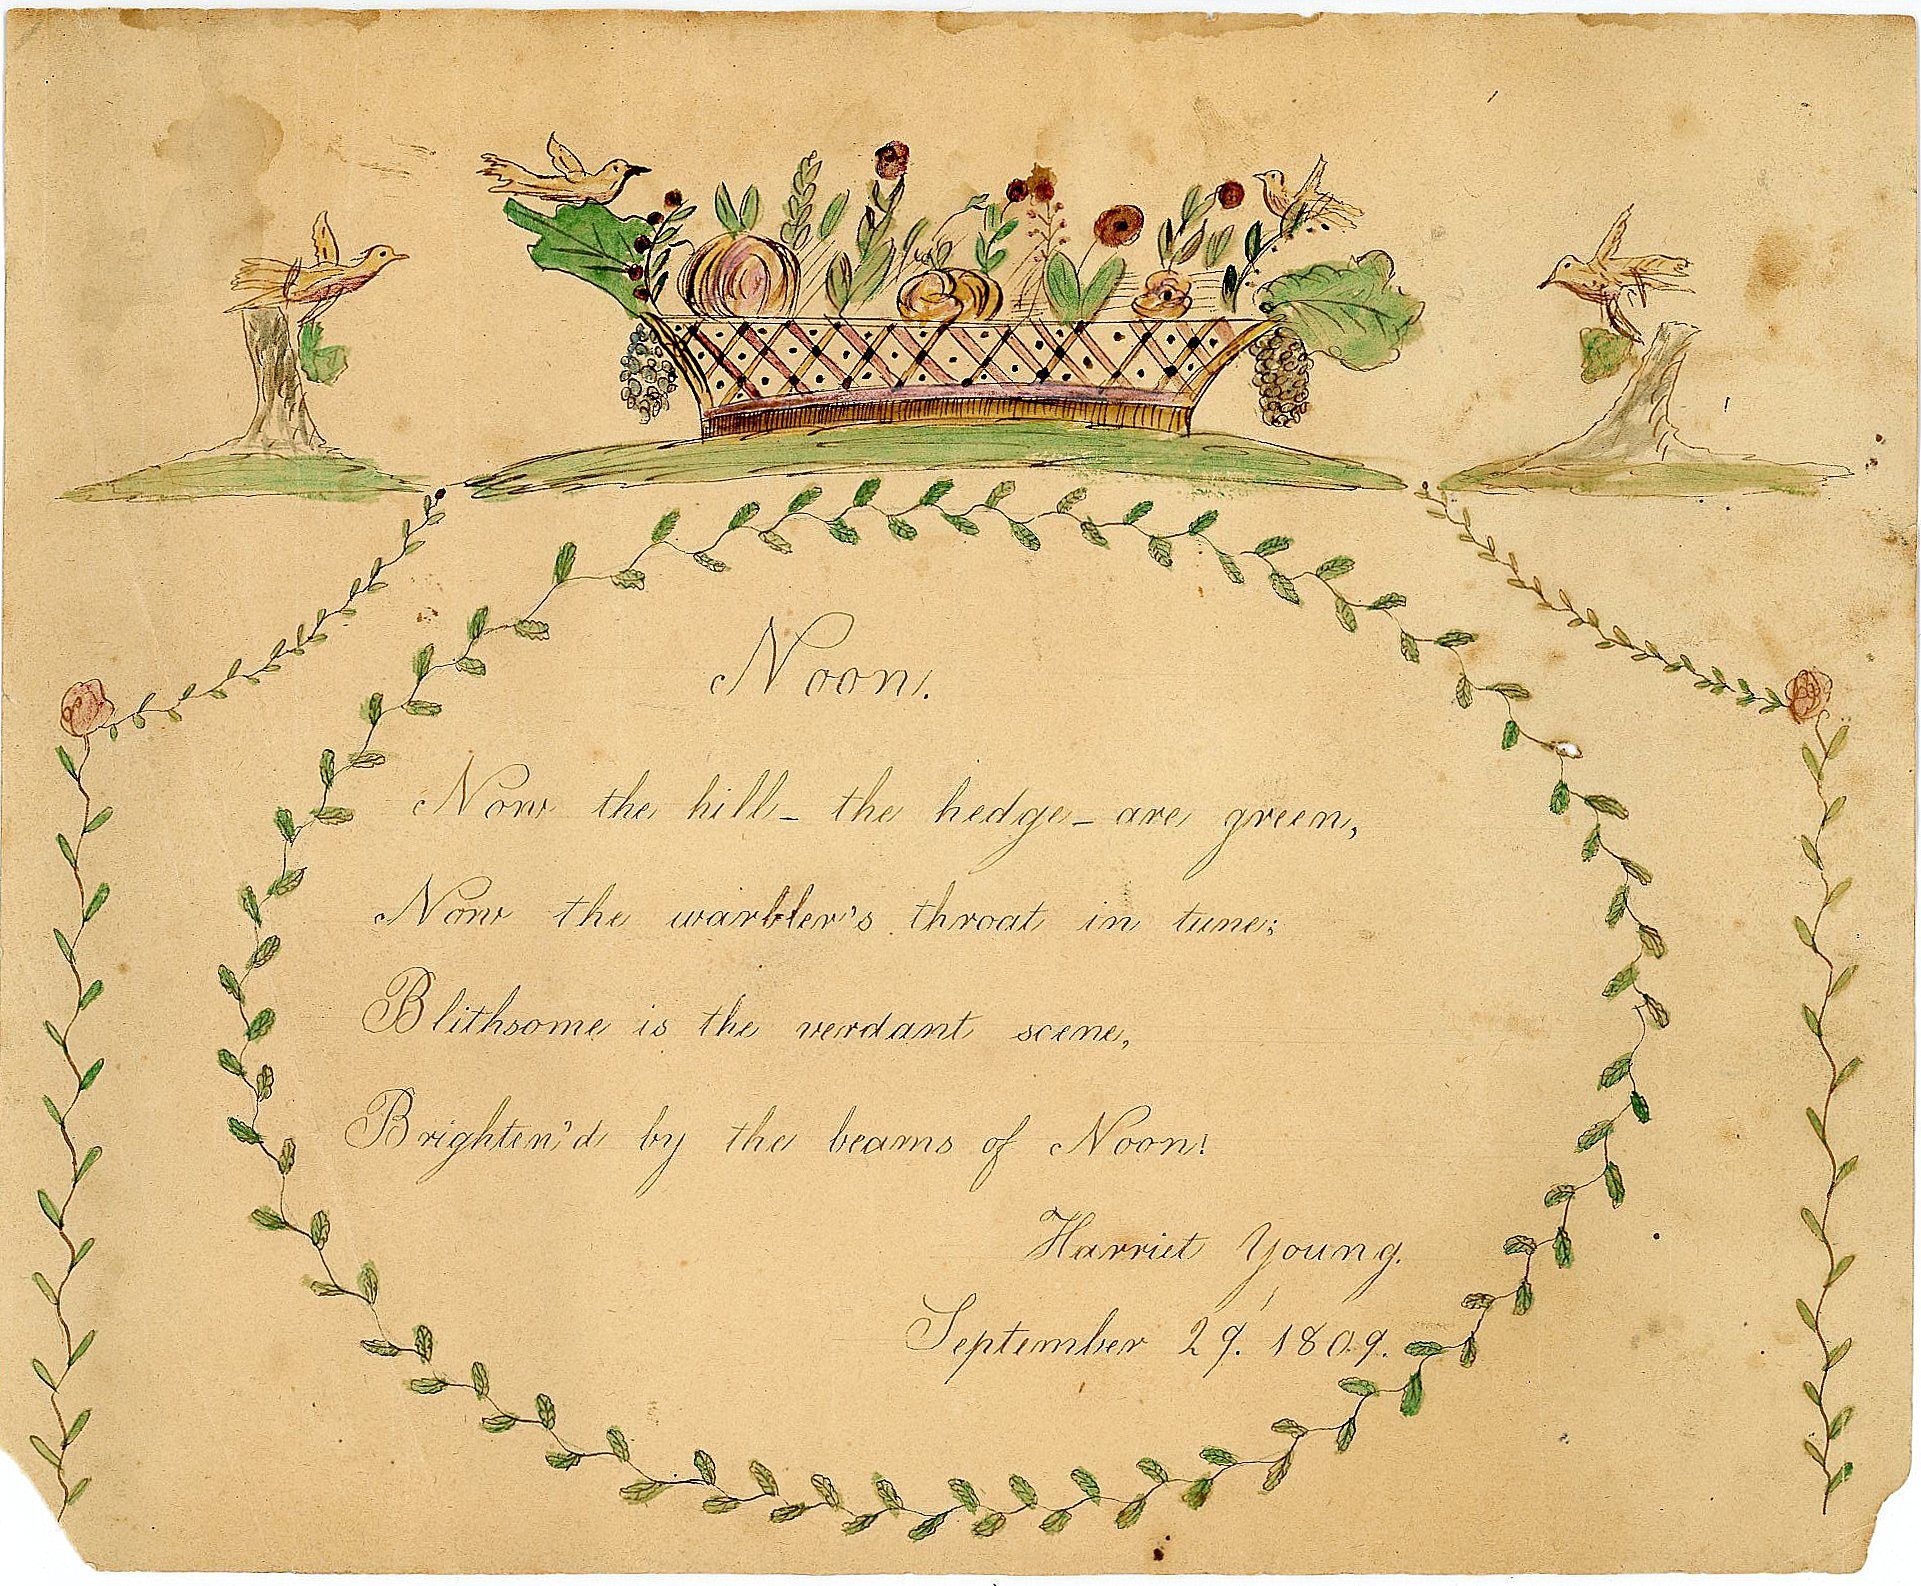 Noon.
Now the hill_ the hedge_ are green,
Now the warbler's throat in tune;
Blithsome is the verdant scene,
Brighten'd by the beams of Noon!
Harriet Young.
September 29. 1809.